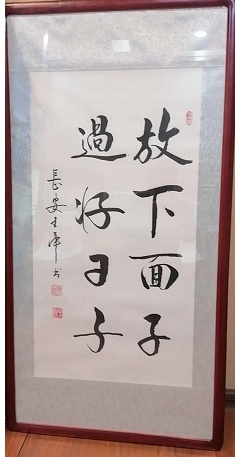 放下面子
過好日子
長安王華书